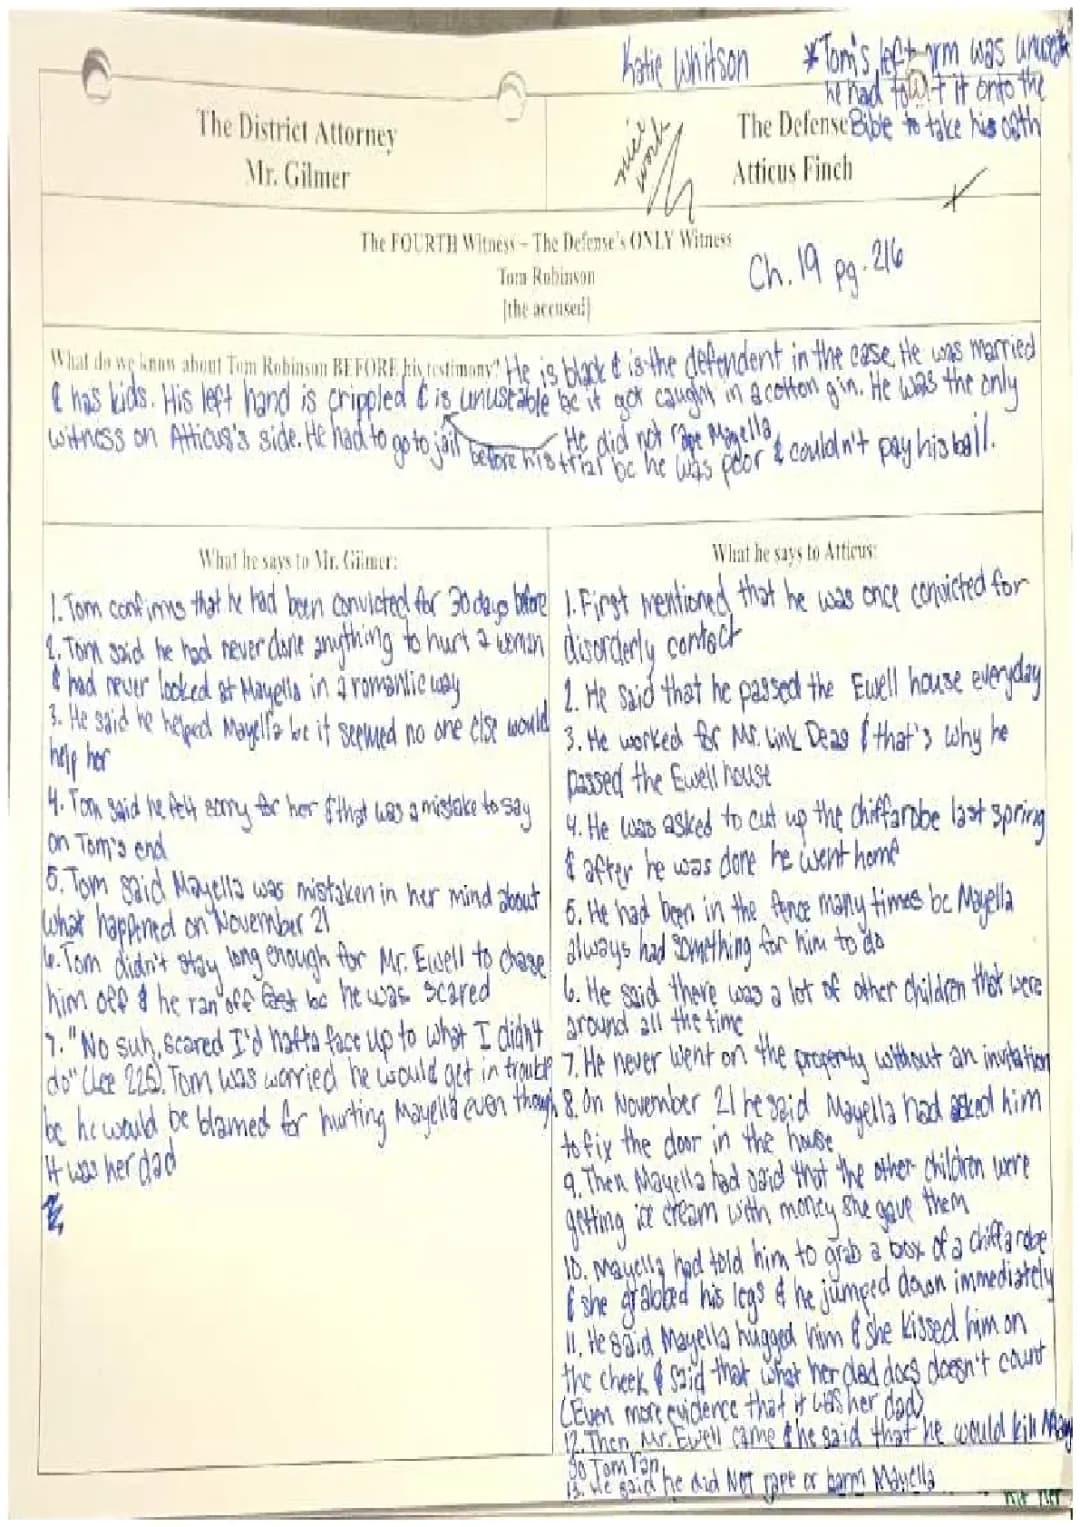 Katie Whitson
*Tom's left arm was
he had to it onto the
Bible to take his oath
The District Attorney
Mr. Gilmer
nice work
The Defense
Atticus Finch
The FOURTH Witness - The Defense's ONLY Witness
Tom Robinson
[the accused]
Ch. 19 pg. 216
What do we know about Tom Robinson BEFORE his testimony? He is black & is the defendent in the case. He was married
& has kids. His left hand is crippled & is unuseable bc it got caught in a cotton gin. He was the only
witness on Atticus's side. He had to go to jail before his trial bc he was poor & couldn't pay his bail.
He did not rape Mayella
What he says to Mr. Gilmer:
1. Tom confirms that he had been convicted for 30 days before
2. Tom said he had never done anything to hurt a woman
& had never looked at Mayella in a romantic way
3. He said he helped Mayella bc it seemed no one else would
help her
4. Tom said he felt sorry for her & that was a mistake to say
on Tom's end
5. Tom said Mayella was mistaken in her mind about
what happened on November 21
6. Tom didn't stay long enough for Mr. Ewell to chase
him off & he ran off bc he was scared
7. "No suh, scared I'd hafta face up to what I didn't
do" (Lee 225). Tom was worried he would get in trouble
bc he would be blamed for hurting Mayella even though
it was her dad
What he says to Atticus:
1. First mentioned that he was once convicted for
disorderly contact
2. He said that he passed the Ewell house everyday
3. He worked for Mr. Link Deas & that's why he
passed the Ewell house
4. He was asked to cut up the chiffarobe last spring
& after he was done he went home
5. He had been in the fence many times bc Mayella
always had something for him to do
6. He said there was a lot of other children that were
around all the time
7. He never went on the property without an invitation
8. On November 21 he said Mayella had asked him
to fix the door in the house
9. Then Mayella had said that the other children were
getting ice cream with money she gave them
10. Mayella had told him to grab a box of a chiffarobe
& she grabbed his legs & he jumped down immediately
11. He said Mayella hugged him & she kissed him on
the cheek & said that what her dad does doesn't count
(Even more evidence that it was her dad)
12. Then Mr. Ewell came & he said that he would kill
so Tom ran
13. He said he did Not rape or harm Mayella